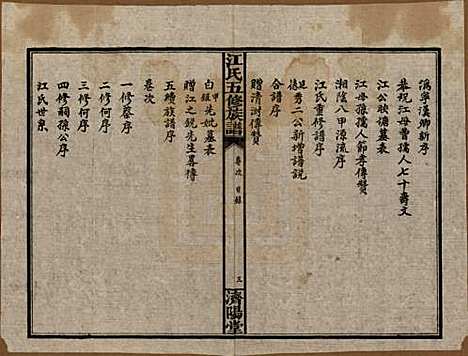 溈寧漢卿新序
恭祝江母曹孺人七十壽文
江公映德墓表
江母孺人節孝傳贊
湘陰八甲源流序
江氏重修譜序
德秀二公新增譜説
合譜序
贈清澍偉贊
江氏五修族譜
卷次
目錄
五
濟陽堂
甲
白銀先妣墓表
贈江之鋭先生畧傳
五續族譜序
卷次
一修蔡序
二修何序
三修何序
四修嗣孺公序
江氏世系